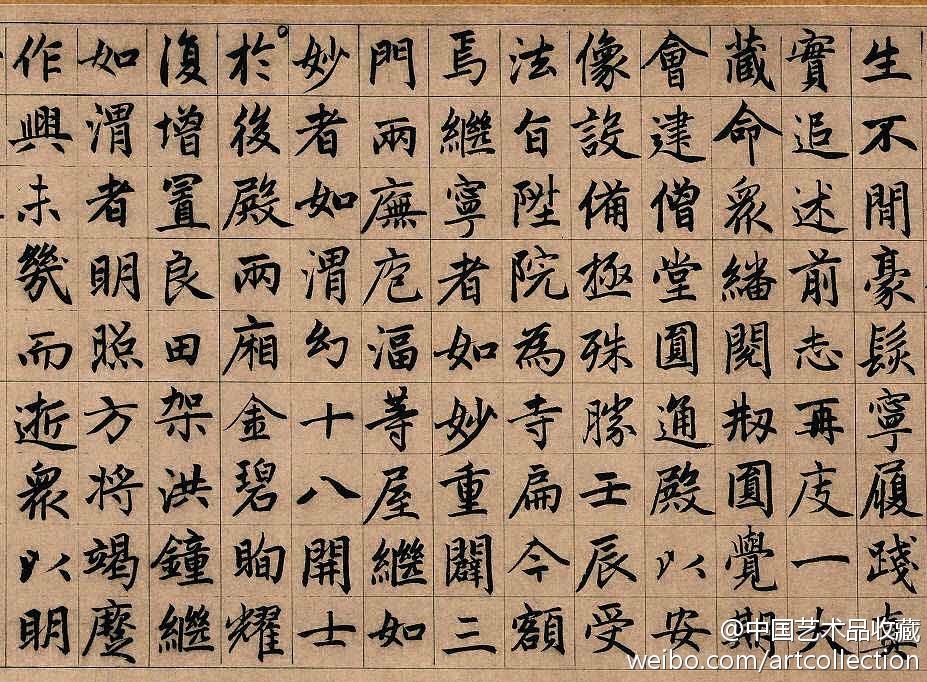 生不閒豪髮寧履踐真
實追述前志再庋一大
藏命眾繙閱刱圓覺期
會建僧堂圓通殿以安
像設備極殊勝壬辰受
法旨陞院為寺扁今額
焉繼寧者如妙重闢三
門兩廡庖湢等屋繼如
妙者如渭幻十八開士
於後殿兩廂金碧眴耀
復增置良田架洪鐘繼
如渭者明照方將竭蹷
作興未幾而逝眾以明
@中国艺术品收藏
weibo.com/artcollection